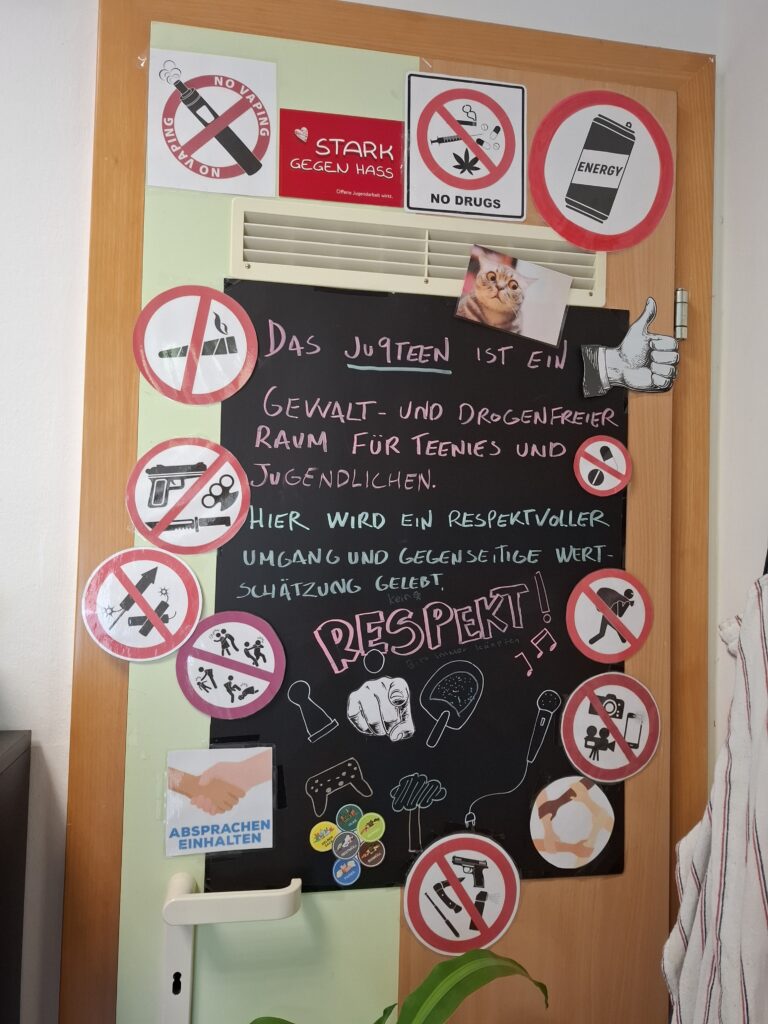 NO VAPING
NO VAPING
NO VAPING
STARK
GEGEN HASS
Offene Jugendarbeit wirkt.
NO DRUGS
ENERGY
DAS JU9TEEN IST EIN
GEWALT- UND DROGENFREIER
RAUM FÜR TEENIES UND
JUGENDLICHEN.
HIER WIRD EIN RESPEKTVOLLER
UMGANG UND GEGENSEITIGE WERT-
SCHÄTZUNG GELEBT.
kein
RESPEKT!
ABSPRACHEN
EINHALTEN